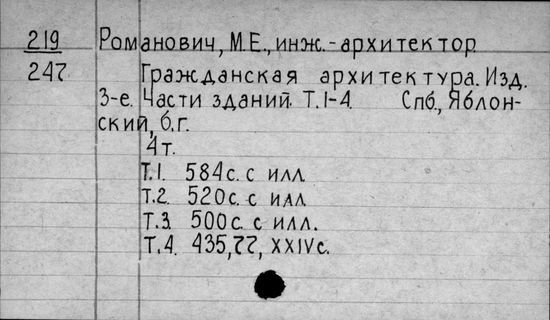 219 Романович, М.Е., инж.-архитектор
247 Гражданская архитектура. Изд.
3-е. Части зданий. Т.1-4 Спб., Яблон-
ский, б.г.
4т.
Т.1. 584с. с илл.
Т.2. 520с. с илл
Т.3. 500с. с илл.
Т.4. 435, 22, XXIVс.